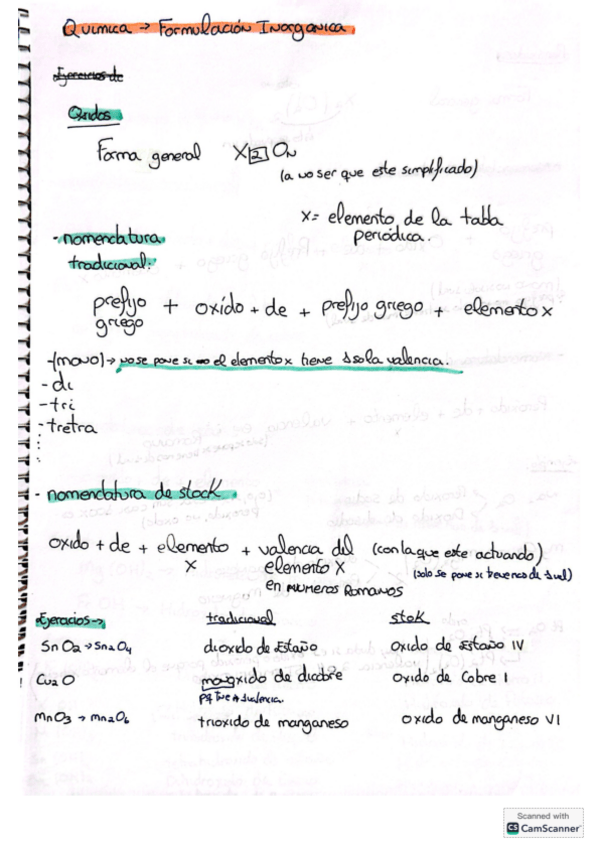 Química → Formulación Inorganica
Ejercicios de
Oxidos
Forma general X[2]On
(a no ser que este simplificado)
X= elemento de la tabla
periódica.
- nomenclatura
tradicional:
prefijo + oxído + de + prefijo griego + elemento x
griego
-(mono)→ no se pone si el elemento x tiene 1 sola valencia.
- di
- tri
- tretra
- nomenclatura de stock.
oxido + de + elemento + valencia del (con la que este actuando)
x elemento x (solo se pone si tiene mas de 1 val)
en NUMEROS ROMANOS
Ejercicios→ tradicional stok
SnO2→Sn2O4 dioxido de Estaño oxido de Estaño IV
Cu2O monoxido de dicobre oxido de Cobre I
MnO3→Mn2O6 trioxido de manganeso oxido de manganeso VI
Scanned with
CS CamScanner